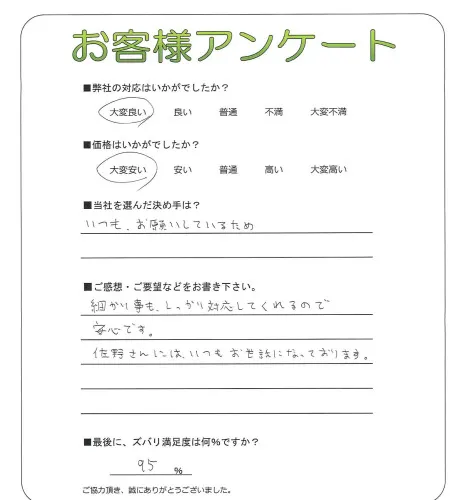 お客様アンケート
■弊社の対応はいかがでしたか？
大変良い 良い 普通 不満 大変不満
■価格はいかがでしたか？
大変安い 安い 普通 高い 大変高い
■当社を選んだ決め手は？
いつも、お願いしているため
■ご感想・ご要望などをお書き下さい。
細かい事も、しっかり対応してくれるので
安心です。
佐野さんには、いつもお世話になっております。
■最後に、ズバリ満足度は何%ですか？
95 %
ご協力頂き、誠にありがとうございました。